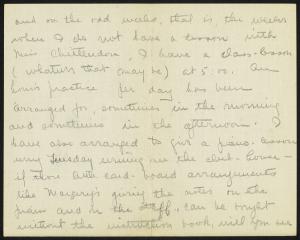 and on the odd weeks, that is, the weeks
where I do not have a lesson with
Miss Chittenden, I have a class-lesson
(whatever that may be) at 5:00. An
hour's practice per day has been
arranged for, sometimes in the morning
and sometimes in the afternoon. I
have also arranged to give a piano-lesson
every Tuesday evening at the club-house -
if those card-board arrangements
like Margery's giving the notes on the
piano and on the staff, can be bought
without the instruction book, will you see